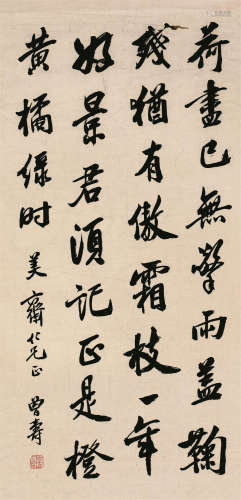 荷盡已無擎雨蓋鞠
殘猶有傲霜枝一年
好景君須記正是橙
黄橘緑时 美齋仁兄正 曾壽